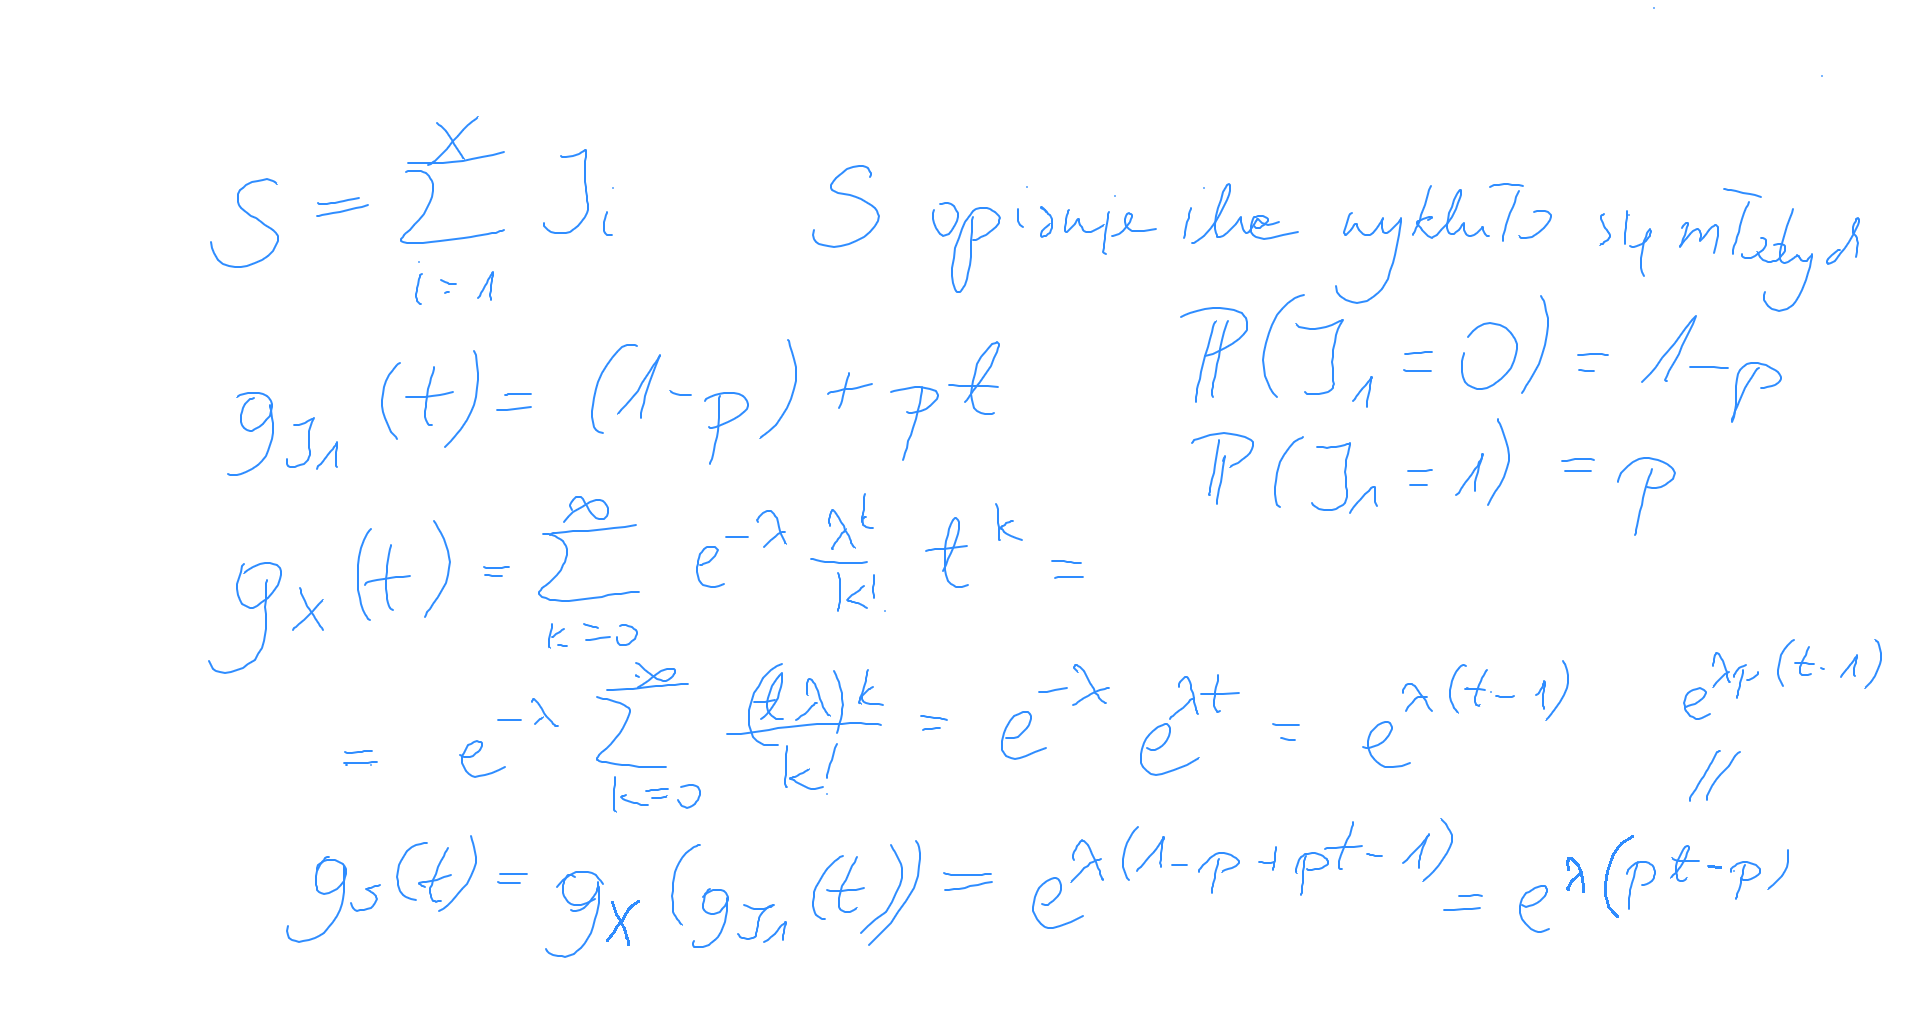 S = \sum_{i=1}^{X} J_i S opisuje ile wykluło się młodych
g_{J_1}(t) = (1-p) + pt ℙ(J_1 = 0) = 1-p
ℙ(J_1 = 1) = p
g_X(t) = \sum_{k=0}^{\infty} e^{-λ} \frac{λ^t}{k!} t^k =
= e^{-λ} \sum_{k=0}^{\infty} \frac{(tλ)^k}{k!} = e^{-λ} e^{λt} = e^{λ(t-1)} e^{λp(t-1)}
//
g_S(t) = g_X(g_{J_1}(t)) = e^{λ(1-p+pt-1)} = e^{λ(pt-p)}